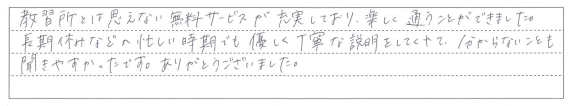 教習所とは思えない無料サービスが充実しており、楽しく通うことができました。
長期休みなどの忙しい時期でも優しく丁寧な説明をしてくれて、分からないことも
聞きやすかったです。ありがとうございました。